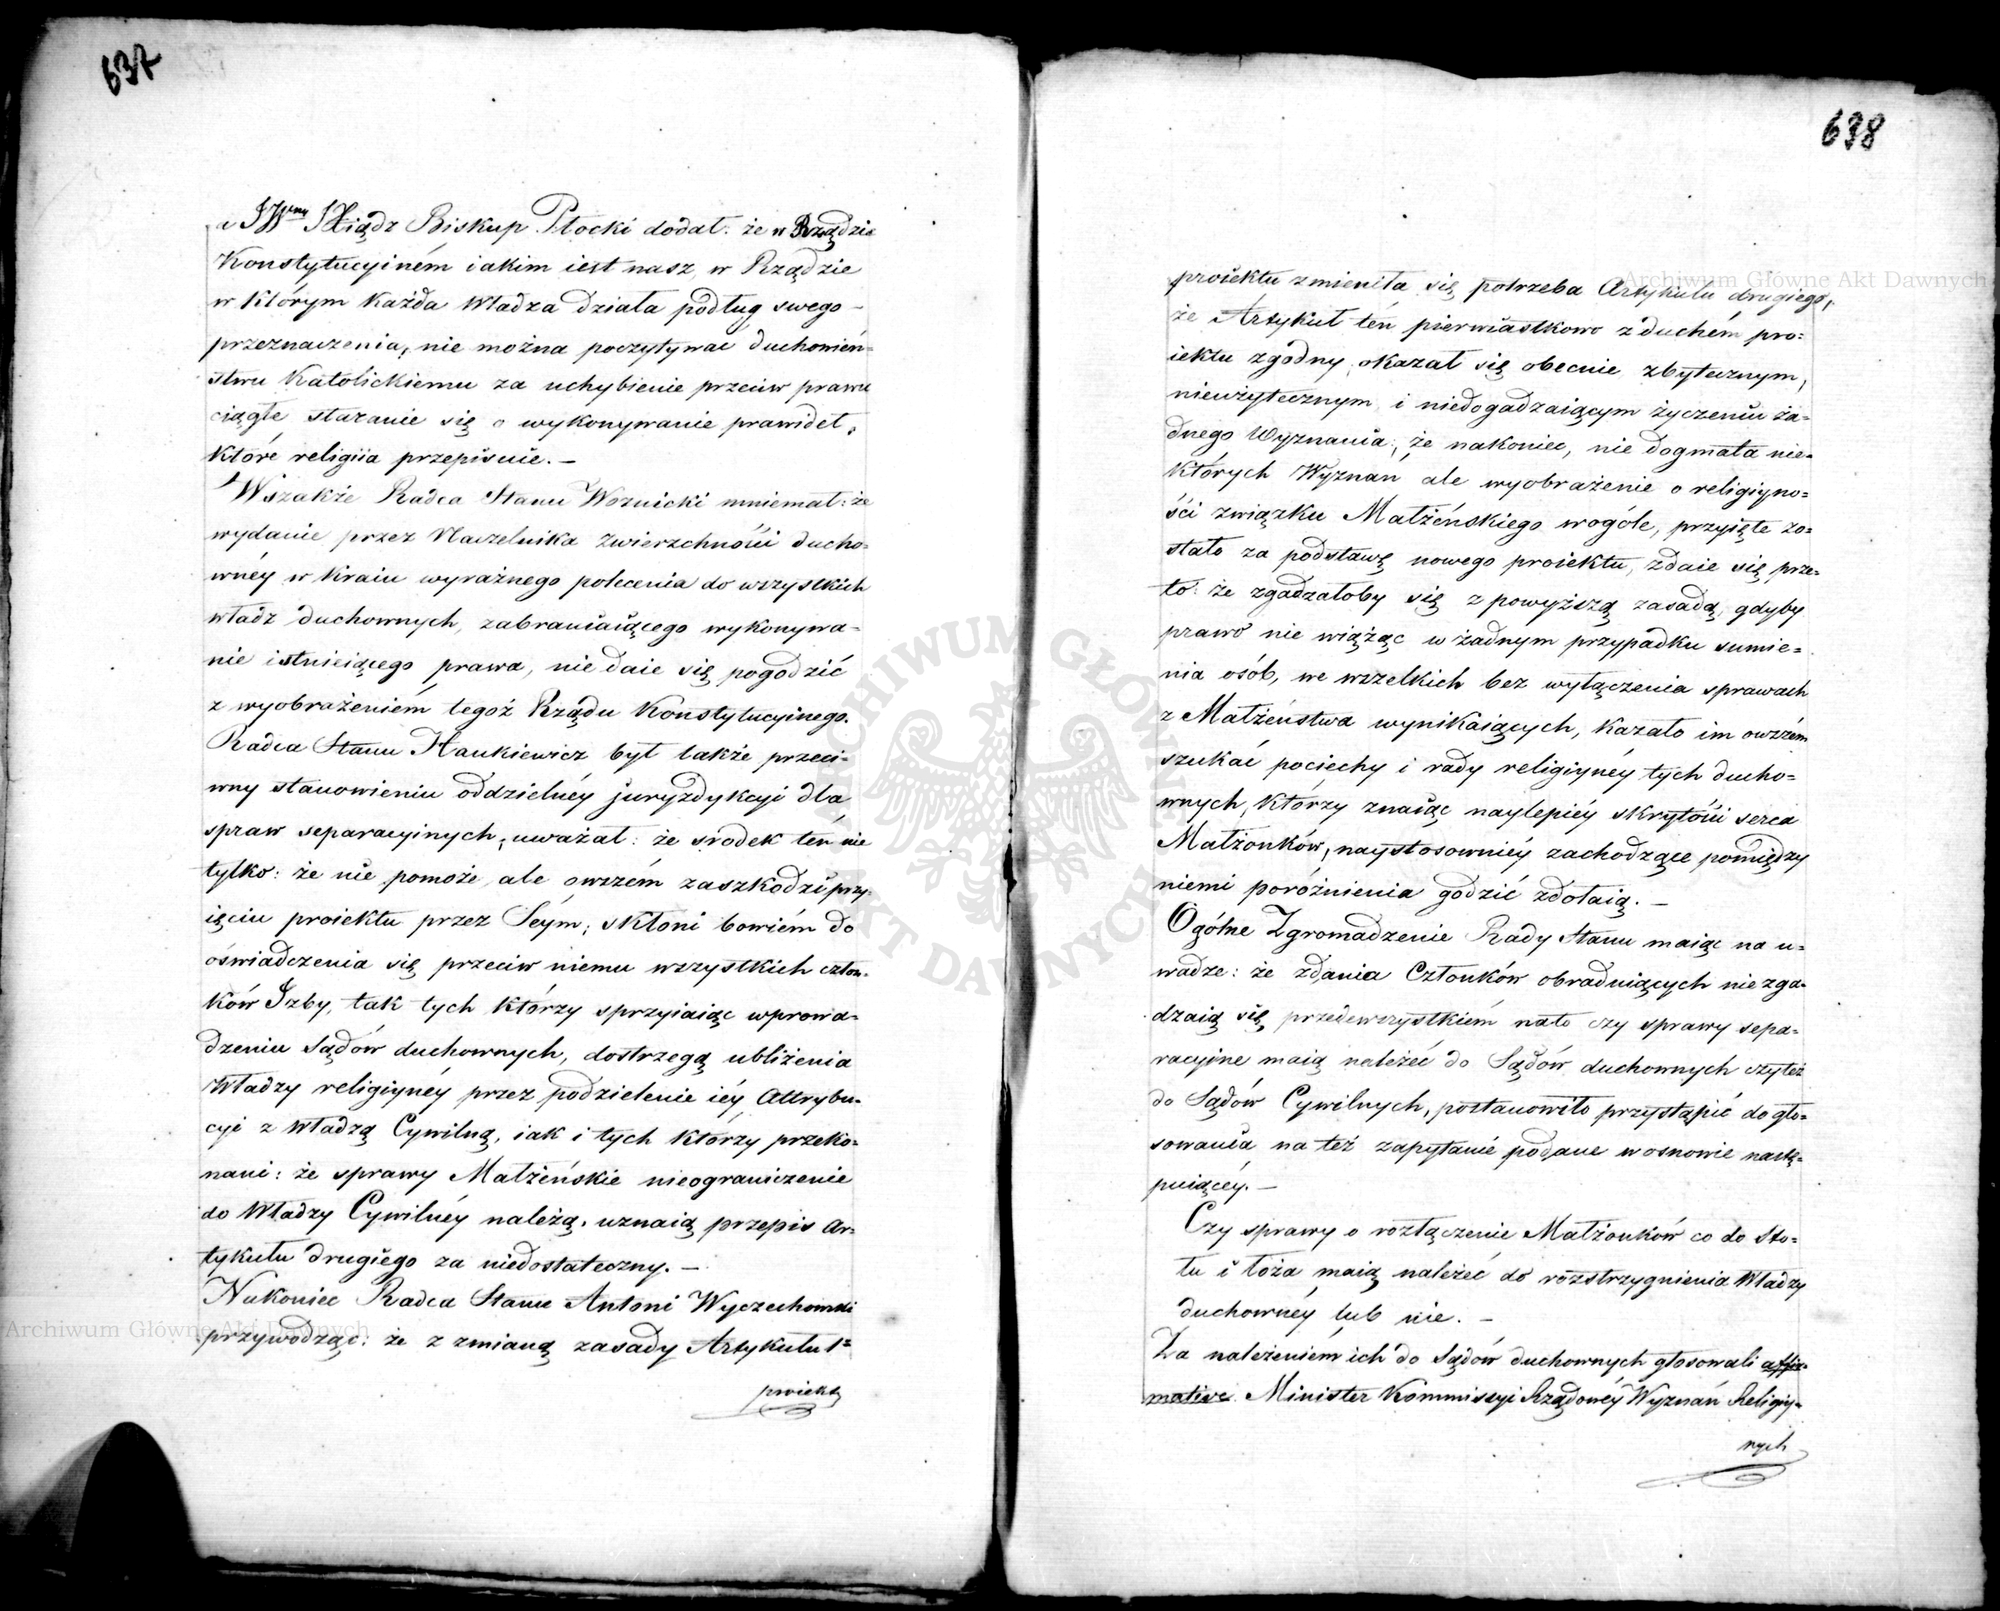 637
a JWny JXiądz Biskup Płocki dodał: że w Rządzie
Konstytucyiném iakim iest nasz, w Rządzie
w którym każda Władza działa podług swego –
przeznaczenia, nie można poczytywać duchowień=
stwu Katolickiemu za uchybienie przeciw prawu
ciągłe staranie się o wykonywanie prawideł,
które religiia przepisuie. –
Wszakże Radca Stanu Woznicki mniemał: że
wydanie przez Naczelnika Zwierzchności ducho=
wnéy w Kraiu wyraźnego polecenia do wszystkich
władz duchownych, zabraniaiącego wykonywa=
nie istnieiącego prawa, nie daie się pogodzić
z wyobrażeniém tegoż Rządu Konstytucyinego.
Radca Stanu Hankiewicz był także przeci=
wny stanowieniu oddzielnéy juryzdykcyi dla
spraw separacyinych, uważał: że środek ten nie
tylko: że nie pomoże, ale owszém zaszkodzi przy=
ięciu proiektu przez Seym; skłoni bowiém do
oświadczenia się przeciw niemu wszystkich człon=
ków Izby, tak tych którzy sprzyiaiąc wprowa=
dzeniu Sądów duchownych, dostrzegą ubliżenia
Władzy religiynéy przez podzielenie iéy Attrybu=
cyi z Władzą Cywilną, iak i tych którzy przeko=
nani: że sprawy Małżeńskie nieograniczenie
do Władzy Cywilnéy należą, uznaią przepis Ar=
tykułu drugiego za niedostateczny. –
Nakoniec Radca Stanu Antoni Wyczechowski
przywodząc: że z zmianą zasady Artykułu 1=
proiektu
638
proiektu zmieniła się potrzeba Artykułu drugiego,
że Artykuł ten pierwiastkowo z duchém pro=
iektu zgodny, okazał się obecnie zbytecznym,
nieużytecznym, i niedogadzaiącym życzeniu ża=
dnego Wyznania; że nakoniec, nie dogmata nie=
których Wyznań ale wyobrażenie o religiyno=
ści związku Małżeńskiego wogóle, przyięte zo=
stało za podstawę nowego proiektu, zdaie się prze=
to: że zgadzałoby się z powyższą zasadą, gdyby
prawo nie wiążąc w żadnym przypadku sumie=
nia osób, we wszelkich bez wyłączenia sprawach
z Małżeństwa wynikaiących, kazało im owszém
szukać pociechy i rady religiynéy tych ducho=
wnych, którzy znaiąc naylepiéy skrytości serca
Małżonków, naystosowniéy zachodzące pomiędzy
niemi poróżnienia godzić zdołaią. –
Ogólne Zgromadzenie Rady Stanu maiąc na u=
wadze: że zdania Członków obraduiących nie zga=
dzaią się, przedewszystkiém nato czy sprawy sepa=
racyine maią należéć do Sądów duchownych czyteż
do Sądów Cywilnych, postanowiło przystąpić do gło=
sowania na też zapytanie podane w osnowie nastę=
puiącéy. –
Czy sprawy o rozłączenie Małżonków co do Sto=
łu i łoża maią należéć do rozstrzygnienia Władzy
duchownéy lub nie. –
Za należeniém ich do Sądów duchownych głosowali affir=
mative Minister Kommissyi Rządowéy Wyznań Religiy=
nych
Archiwum Główne Akt Dawnych
Archiwum Główne Akt Dawnych
ARCHIWUM GŁÓWNE AKT DAWNYCH